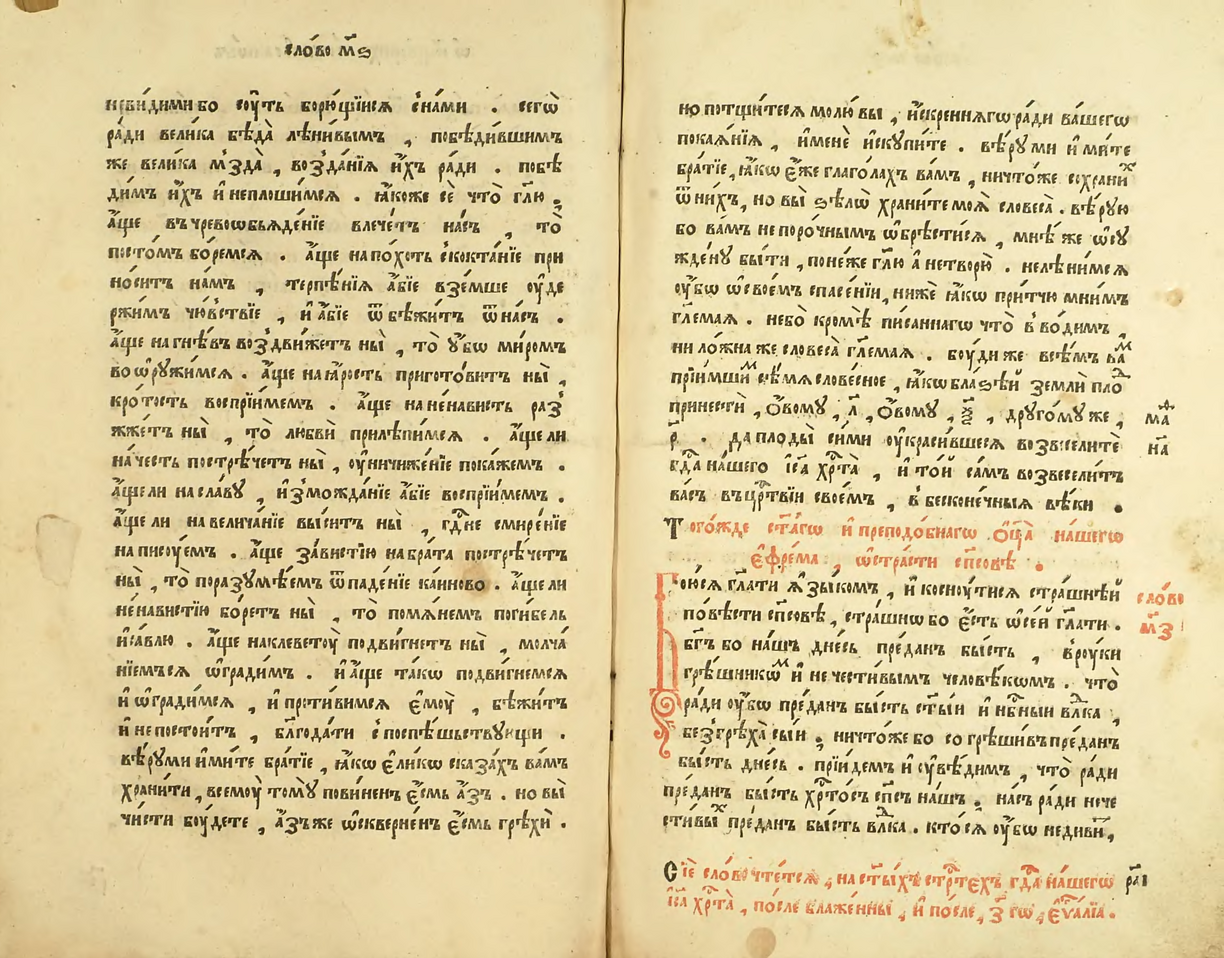 сло́во м҃ѕ
неви́дими бо сꙋ́ть борю́щїисѧ с на́ми . сегѡ̀
ра́ди вели́ка бѣда̀ лѣни́вымъ , побѣди́вшимъ
же вели́ка мѕда̀ , воз̾да́нїѧ и҆́хъ ра́ди . побѣ
ди́мъ и҆́хъ и҆ неплоши́мсѧ . ꙗ҆́коже сѐ что̀ гл҃ю ,
а҆́ще въ чревоѡбьѧде́нїе влече́тъ на́съ , то̀
посто́мъ бо́ремсѧ . а҆́ще на по́хоть скокта́нїе при
но́ситъ на́мъ , терпѣ́нїѧ а҆́бїе взе́мше оу҆де
ржи́мъ чю́вствїе , и҆ а҆́бїе ѿбѣжи́тъ ѿ на́съ .
а҆́ще на гнѣ́въ воз̾дви́жетъ ны̀ , то̀ ᲂу҆́бѡ ми́ромъ
воѡрꙋжи́мсѧ . а҆́ще на ꙗ҆́рость пригото́витъ ны̀ ,
кро́тость воспрїи́мемъ . а҆́ще на не́нависть раз̾
жже́тъ ны̀ , то̀ любвѝ прилѣпи́мсѧ . а҆́ще ли
на че́сть пострѣ́четъ ны̀ , оу҆ничиже́нїе пока́жемъ .
а҆́ще ли на сла́вꙋ , и҆з̾можда́нїе а҆́бїе воспрїи́мемъ .
а҆́ще ли на велича́нїе вы́ситъ ны̀ , гдⷭ҇не смире́нїе
написꙋ́емъ . а҆́ще за́вистїю на бра́та пострѣ́четъ
ны̀ , то̀ поразꙋмѣ́емъ ѿпаде́нїе ка́иново . а҆́ще ли
не́навистїю бо́ретъ ны̀ , то̀ помѧ́немъ поги́бель
и҆са́влю . а҆́ще на клеветꙋ̀ подви́гнетъ ны̀ , молча́
нїемъсѧ ѡ҆гради́м . и҆ а҆́ще та́кѡ подви́гнемсѧ
и҆ ѡ҆гради́мсѧ , и҆ проти́вимсѧ є҆мꙋ̀ , бѣжи́тъ
и҆ непостои́тъ , бл҃года́ти споспѣ́шьствꙋющи .
вѣ́рꙋ ми и҆ми́те бра́тїе , ꙗ҆́кѡ є҆ли́кѡ сказа́хъ ва́мъ
храни́ти , всемꙋ̀ томꙋ̀ пови́ненъ є҆́смь а҆́зъ . но вы̀
чи́сти бꙋ́дете , а҆́зъ же ѡ҆скверне́нъ є҆́смь грѣхѝ .
но потщи́тесѧ молю́ вы , и҆́скреннѧгѡ ра́ди ва́шегѡ
покаѧ́нїѧ , и҆́мене и҆скꙋпи́те . вѣ́рꙋ ми и҆ми́те
бра́тїе, ꙗ҆́кѡ є҆́же глаго́лахъ ва́мъ , ничто́же сохрани́ⷯ
ѿ ни́хъ, но вы̀ ѕѣлѡ̀ храни́те моѧ̀ словеса̀ . вѣ́рꙋю
бо ва́мъ непоро́чнымъ ѡ҆брѣсти́сѧ , мнѣ́ же ѡ҆сꙋ
жде́нꙋ бы́ти , поне́же гл҃ю а҆ нетворю̀ . нелѣни́мсѧ
оу҆́бѡ ѡ҆ свое́мъ спасе́нїи, нижѐ ꙗ҆́кѡ при́тчю мни́мъ
гл҃емаѧ . небо̀ кромѣ̀ пи́саннагѡ что̀ в̾во́димъ ,
ни ло́жна же словеса̀ гл҃емаѧ . бꙋ́ди же всѣ́мъ на́ⷨ
прїи́мши́ⷨ сѣ́мѧ слове́сное , ꙗ҆́кѡ бла́ѕѣй землѝ пло́ⷣ
принестѝ , ѻ҆́вомꙋ , л҃ , ѻ҆́вомꙋ , ѯ҃ , дрꙋго́мꙋ же ,
р҃ . да плоды̀ си́ми оу҆краси́вшесѧ возвесели́те
гдⷭ҇а на́шего і҆са҃ хрⷭ҇та̀ , и҆ то́й са́мъ возвесели́тъ
ва́съ въ црⷭ҇твїи свое́мъ , в̾ бесконе́чныѧ вѣ́ки .
маⷴ҇
на҃
Того́жде ст҃а́гѡ и҆ преподо́бнагѡ ѻ҆ц҃а̀ на́шегѡ
є҆фре́ма , ѡ҆ стра́сти сп҃совѣ .
Бою́сѧ гл҃ати ѧ҆зы́комъ , и҆ коснꙋ́тисѧ стра́шнѣй
по́вѣсти сп҃совѣ , стра́шнѡ бо є҆́сть ѡ҆ се́й гл҃ати .
бг҃ъ бо на́шъ дне́сь пре́данъ бы́сть , в̾ рꙋ́ки
грѣ́шникѡ́ⷨ и҆ нечести́вымъ человѣ́кѡмъ . что̀
ра́ди оу҆́бѡ пре́данъ бы́сть ст҃ы́и и҆ нбⷭ҇ныи влⷣка ,
без̾ грѣха̀ сы́и ; ничто́же бо согрѣши́въ пре́данъ
бы́сть дне́сь . прїиде́мъ и҆ оу҆вѣ́димъ , что̀ ра́ди
пре́данъ бы́сть хрⷭ҇то́съ сп҃съ на́шъ . на́съ ра́ди нече
сти́вы́ⷯ пре́данъ бы́сть влⷣка . кто́ сѧ оу҆́бѡ недиви́т̾,
сло́во
м҃з
Сїѐ сло́во чте́тсѧ , на ст҃ы́хъ стрⷭ҇те́хъ гдⷭ҇а на́шегѡ
і҆са҃ хрⷭ҇та̀ , по́сле блаже́нны , и҆ по́сле , з҃ гѡ , є҆ѵⷢ҇а́лїа .
рл҃і